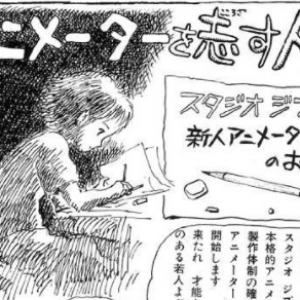 ニメーターを志す人
こころざ
スタジオ ジブ
新人アニメータ
のお
スタジオ ジ
本格的アニメ
製作体制の確
アニメーター
開始します
来たれ 才能
のある若人よ